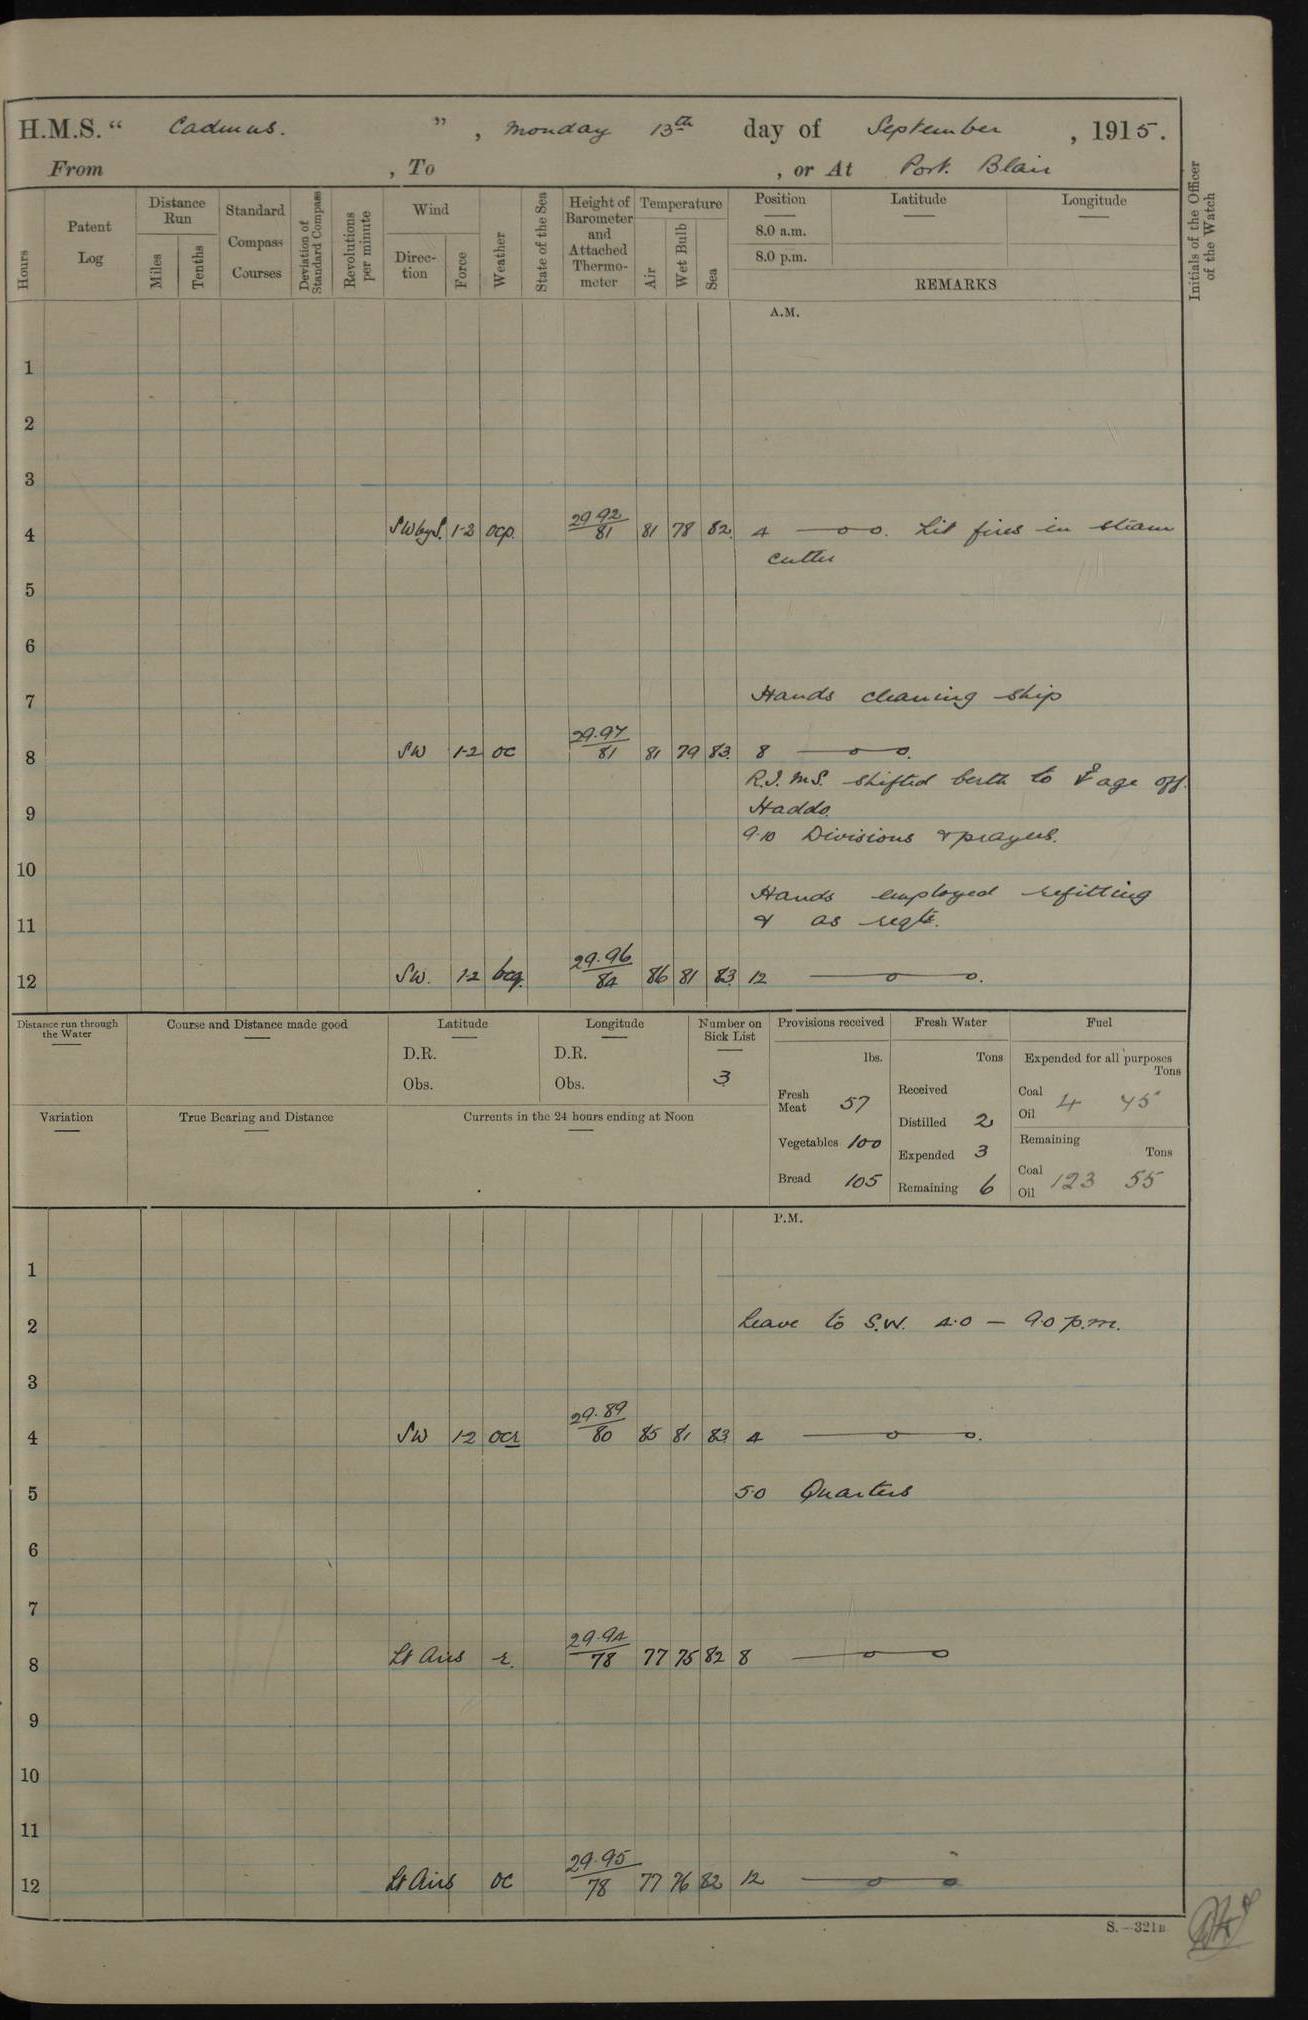 H.M.S. “ Cadmus. ” , Monday 13th day of September , 1915.
From , To , or At Port Blair
Hours
Patent Log
Distance Run
Miles
Tenths
Standard Compass Courses
Deviation of Standard Compass
Revolutions per minute
Wind
Direction
Force
Weather
State of the Sea
Height of Barometer and Attached Thermometer
Temperature
Air
Wet Bulb
Sea
Position
8.0 a.m.
8.0 p.m.
Latitude
Longitude
REMARKS
Initials of the Officer of the Watch
A.M.
1
2
3
4 SWbyS. 1-2 ocp. 29.92/81 81 78 82. 4 —o—o. Lit fires in steam
cutter
5
6
7 Hands cleaning ship
8 SW 1-2 oc 29.97/81 81 79 83. 8 —o—o.
R.I.M.S. shifted berth to age off
9 Haddo.
9.10 Divisions & prayers.
10
Hands employed refitting
11 & as reqte.
12 SW. 1-2 bcq. 29.96/84 86 81 83. 12 —o—o.
Distance run through the Water
Course and Distance made good
Latitude
D.R.
Obs.
Longitude
D.R.
Obs.
Number on Sick List
3
Variation
True Bearing and Distance
Currents in the 24 hours ending at Noon
Provisions received
lbs.
Fresh Meat 57
Vegetables 100
Bread 105
Fresh Water
Tons
Received
Distilled 2
Expended 3
Remaining 6
Fuel
Expended for all purposes
Tons
Coal
Oil 4 45
Remaining
Tons
Coal
Oil 123 55
P.M.
1
2 Leave to S.W. 4.0 — 9.0 p.m.
3
4 SW 1-2 ocr 29.89/80 85 81 83. 4 —o—o.
5 5.0 Quarters
6
7
8 Lt Airs r. 29.94/78 77 75 82 8 —o—o
9
10
11
12 Lt Airs oc 29.95/78 77 76 82 12 —o—o
S.—321B